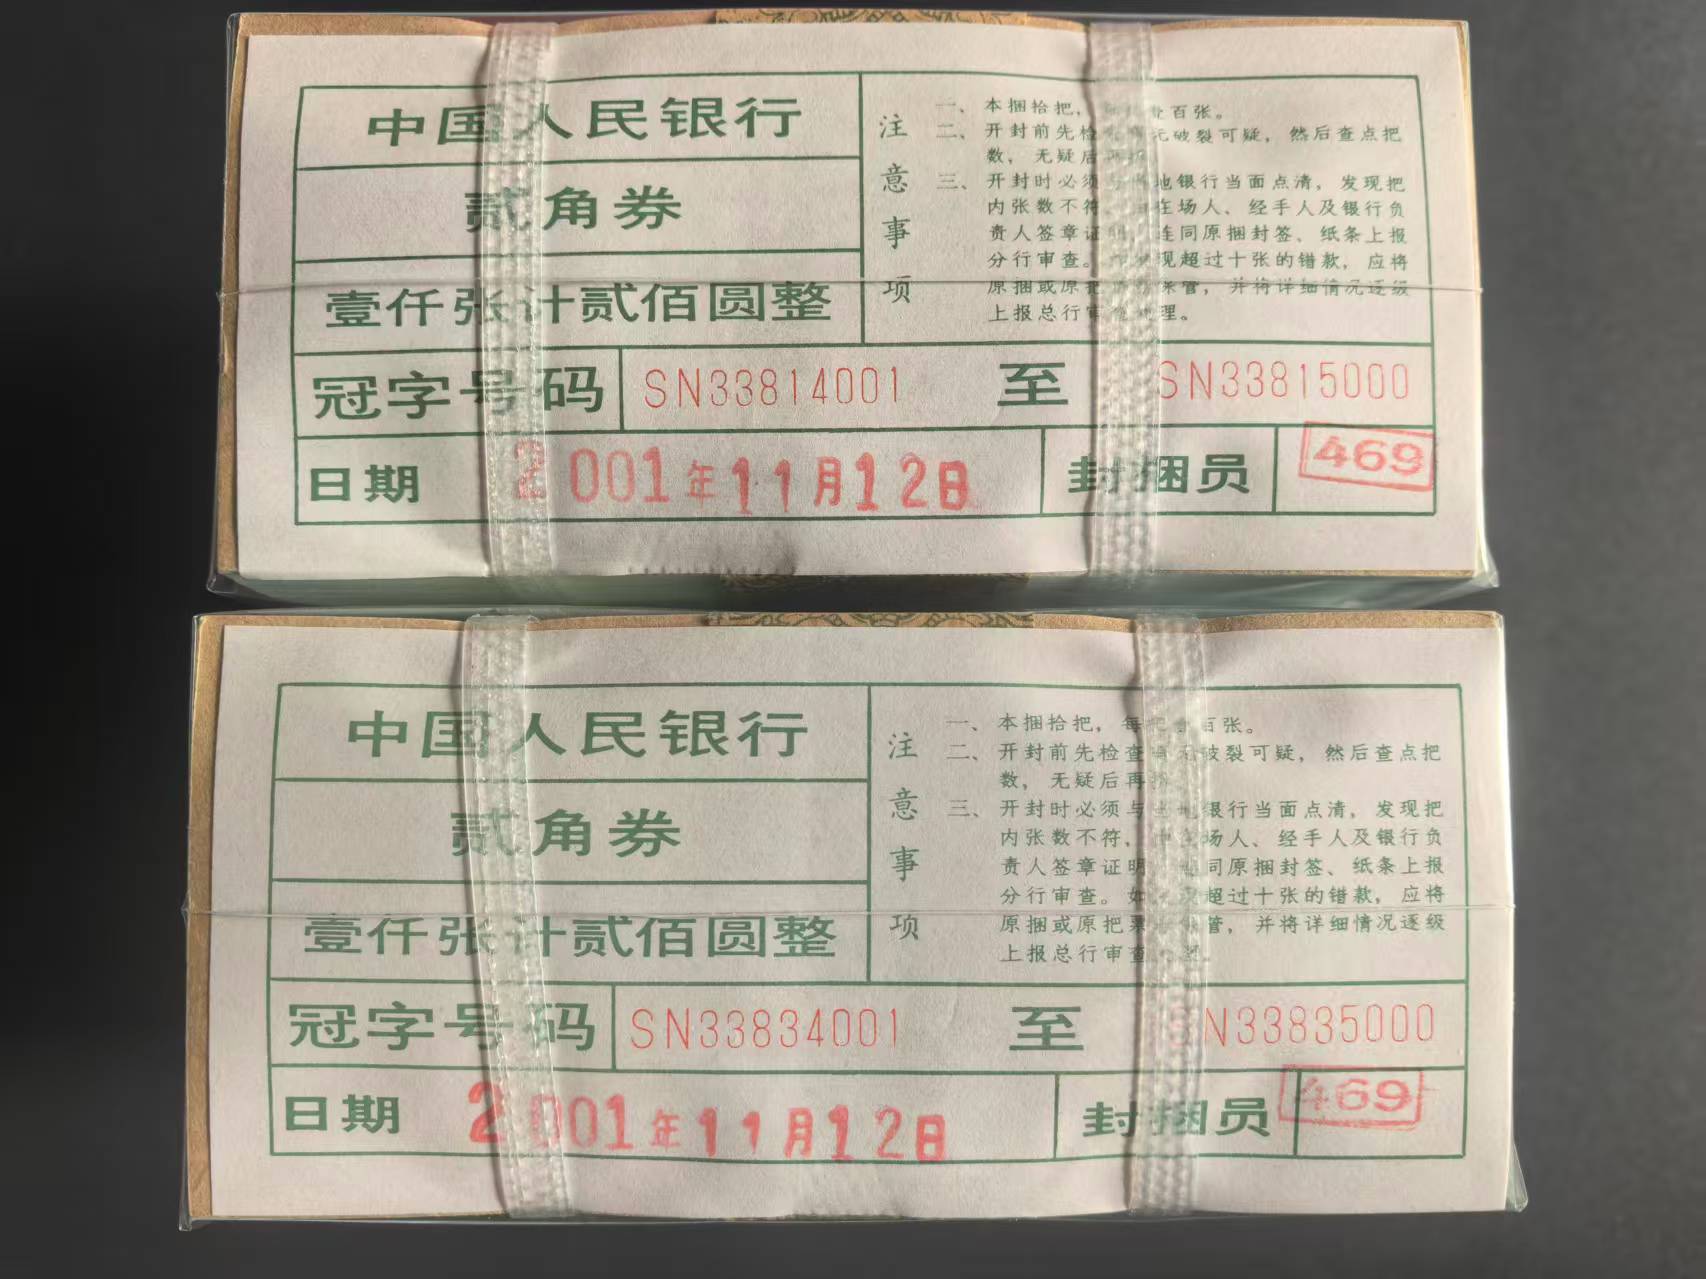 中国人民银行
贰角券
壹仟张计贰佰圆整
注意事项
一、本捆拾把，百张。
二、开封前先检无破裂可疑，然后查点把
数，无疑后再
三、开封时必须地银行当面点清，发现把
内张数不符，在场人、经手人及银行负
责人签章证明，连同原捆封签、纸条上报
分行审查。现超过十张的错款，应将
原捆或原把保管，并将详细情况逐级
上报总行审理。
冠字号码 SN33814001 至 SN33815000
日期 2001年11月12日 封捆员 469
中国人民银行
贰角券
壹仟张计贰佰圆整
注意事项
一、本捆拾把，每百张。
二、开封前先检查破裂可疑，然后查点把
数，无疑后再
三、开封时必须与银行当面点清，发现把
内张数不符，场人、经手人及银行负
责人签章证明，同原捆封签、纸条上报
分行审查。如超过十张的错款，应将
原捆或原把票管，并将详细情况逐级
上报总行审查
冠字号码 SN33834001 至 SN33835000
日期 2001年11月12日 封捆员 469